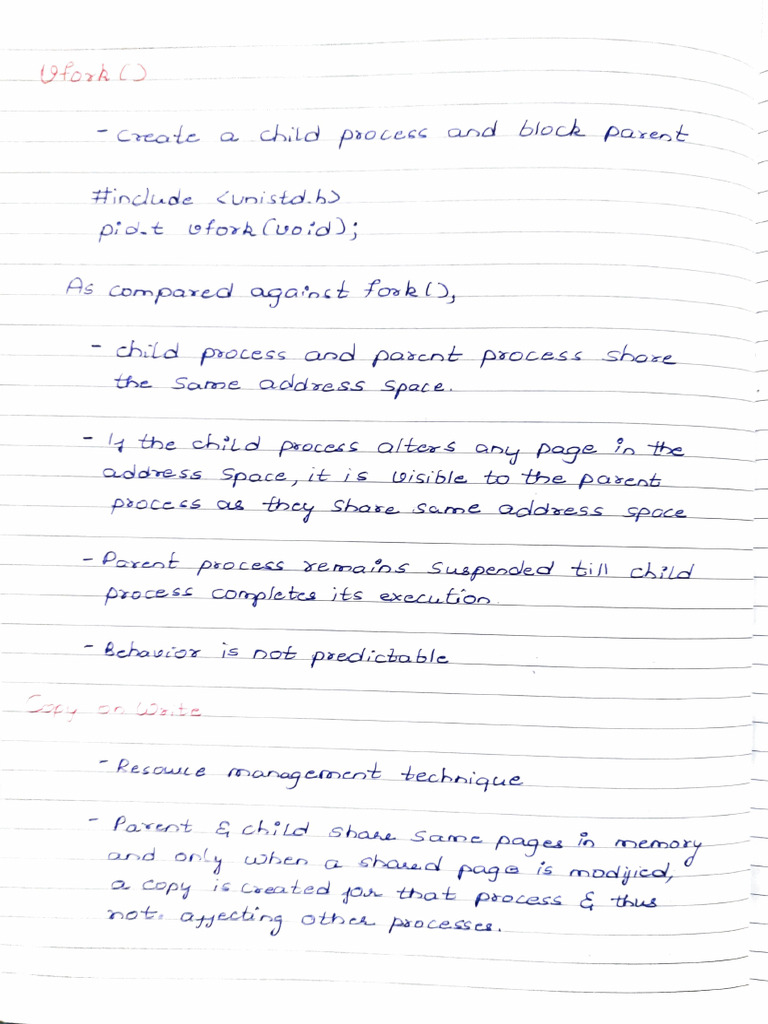 Vfork()
- create a child process and block parent
#include <unistd.h>
pid_t vfork(void);
As compared against fork(),
- child process and parent process share
the same address space.
- If the child process alters any page in the
address space, it is visible to the parent
process as they share same address space
- Parent process remains suspended till child
process completes its execution
- Behavior is not predictable
Copy on Write
- Resource management technique
- Parent & child share same pages in memory
and only when a shared page is modified,
a copy is created for that process & thus
not affecting other processes.